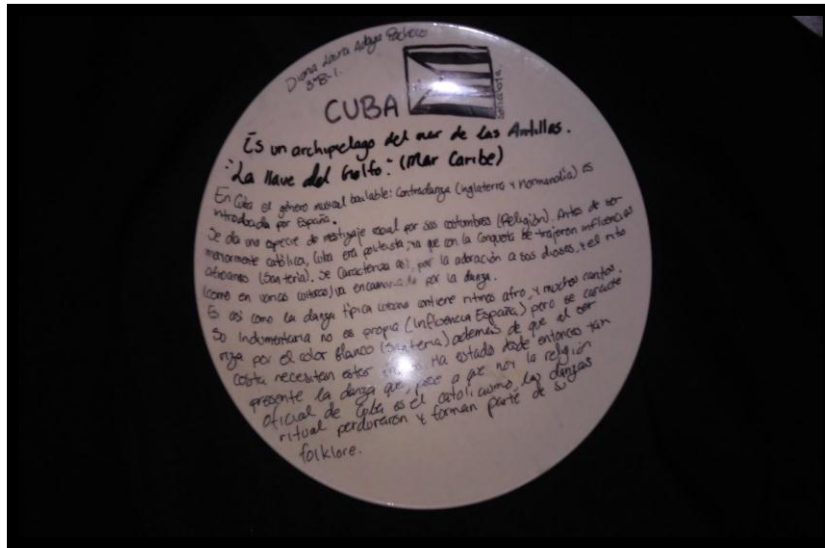 Diana Laura Pacheco
3°B-1.
CUBA
Es un archipelago del mar de las Antillas.
"La llave del Golfo" (Mar Caribe)
En Cuba el género musical bailable: Contradanza (Inglaterra y Normandía) es
introducida por España.
Se da una especie de mestizaje racial por sus costumbres (Religión). Antes de ser
mayormente católica, Cuba era politeista, ya que con la Conquista se trajeron influencias
africanas (Santería). Se caracteriza así, por la adoración a sus dioses, y el rito
(como en varias culturas) va encaminado por la danza.
Es así como la danza típica cubana contiene ritmos afro, y muchos cantos.
Su indumentaria no es propia (Influencia España) pero se caracte
riza por el color Blanco (Santería) además de que al ser
costa necesitan estar Ha estado desde entonces tan
presente la danza que, pese a que hoy la religión
oficial de Cuba es el catolicismo, las danzas
ritual perduraron y forman parte de su
folklore.